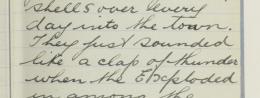 shells over every
day into the town.
They just sounded
like a clap of thunder
when the Exploded
in among the